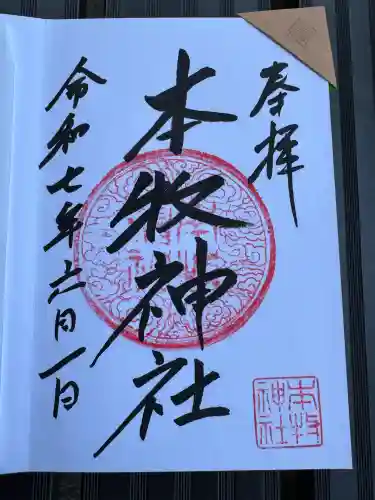 奉拝
本牧神社
令和七年六月一日
本牧
神社